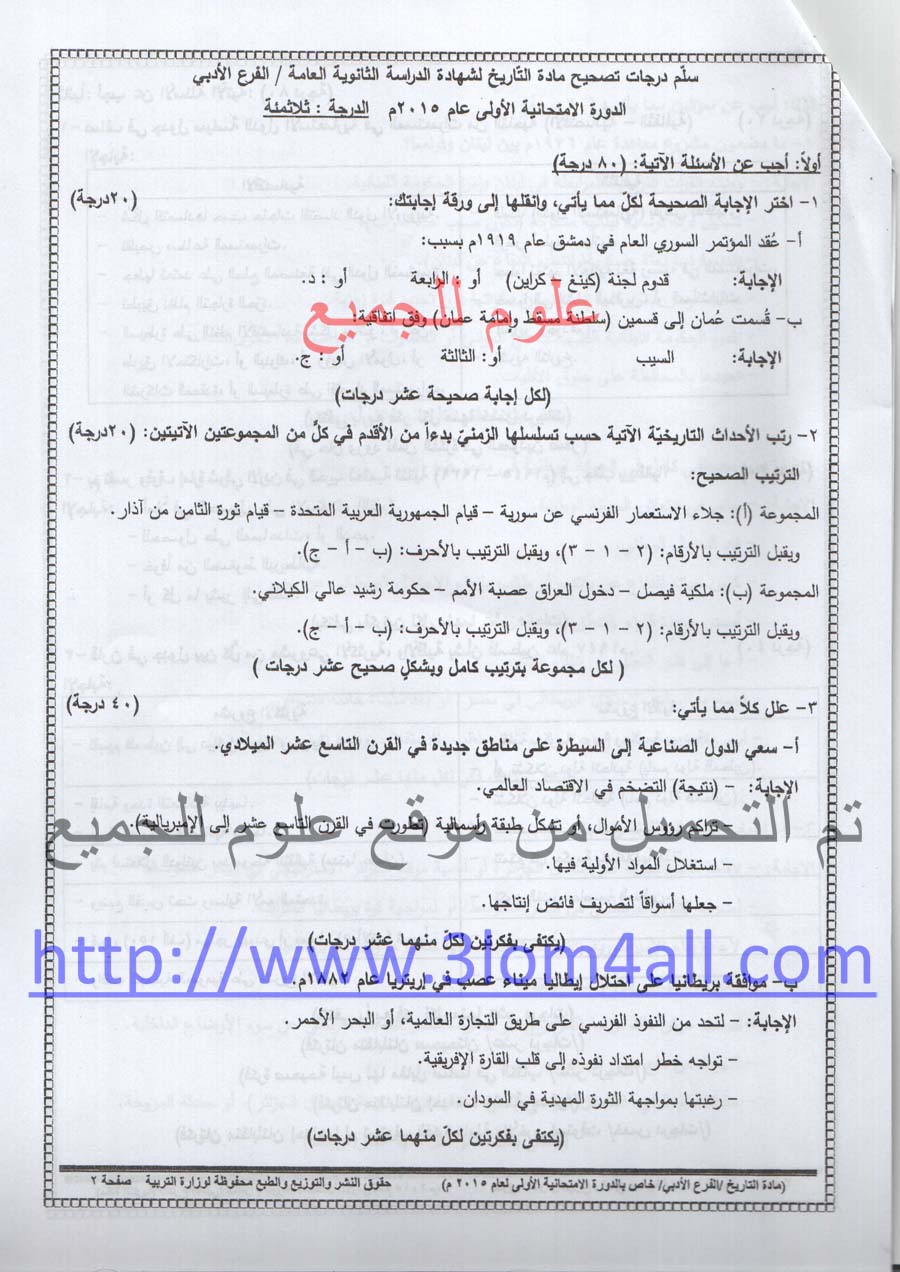 سلّم درجات تصحيح مادة التّاريخ لشهادة الدراسة الثانوية العامة / الفرع الأدبي
الدورة الامتحانية الأولى عام ٢٠١٥م الدرجة : ثلاثمئة
أولاً: أجب عن الأسئلة الآتية: (٨٠ درجة)
١- اختر الإجابة الصحيحة لكلّ مما يأتي، وانقلها إلى ورقة إجابتك: (٢٠درجة)
أ- عُقد المؤتمر السوري العام في دمشق عام ١٩١٩م بسبب:
الإجابة: قدوم لجنة (كينغ – كراين) أو : الرابعة أو : د.
علوم للجميع
ب- قُسمت عُمان إلى قسمين (سلطنة مسقط وإمامة عمان) وفق اتفاقية:
الإجابة: السيب أو: الثالثة أو: ج.
(لكل إجابة صحيحة عشر درجات)
٢- رتب الأحداث التاريخيّة الآتية حسب تسلسلها الزمنيّ بدءاً من الأقدم في كلٍّ من المجموعتين الآتيتين: (٢٠درجة)
الترتيب الصحيح:
المجموعة (أ): جلاء الاستعمار الفرنسي عن سورية – قيام الجمهورية العربية المتحدة – قيام ثورة الثامن من آذار.
ويقبل الترتيب بالأرقام: (٢ – ١ – ٣)، ويقبل الترتيب بالأحرف: (ب – أ – ج).
المجموعة (ب): ملكية فيصل – دخول العراق عصبة الأمم – حكومة رشيد عالي الكيلاني.
ويقبل الترتيب بالأرقام: (٢ – ١ – ٣)، ويقبل الترتيب بالأحرف: (ب – أ – ج).
( لكل مجموعة بترتيب كامل وبشكلٍ صحيح عشر درجات )
٣- علل كلاً مما يأتي: (٤٠ درجة)
أ- سعي الدول الصناعية إلى السيطرة على مناطق جديدة في القرن التاسع عشر الميلادي.
الإجابة: – (نتيجة) التضخم في الاقتصاد العالمي.
تم التحميل من موقع علوم للجميع
– تراكم رؤوس الأموال، أو تشكل طبقة رأسمالية (تطورت في القرن التاسع عشر إلى الإمبريالية).
– استغلال المواد الأولية فيها.
– جعلها أسواقاً لتصريف فائض إنتاجها.
(يكتفى بفكرتين لكلّ منهما عشر درجات)
http://www.3lom4all.com
ب- موافقة بريطانيا على احتلال إيطاليا ميناء عصب في إريتريا عام ١٨٨٢م.
الإجابة: – لتحد من النفوذ الفرنسي على طريق التجارة العالمية، أو البحر الأحمر.
– تواجه خطر امتداد نفوذه إلى قلب القارة الإفريقية.
– رغبتها بمواجهة الثورة المهدية في السودان.
(يكتفى بفكرتين لكلّ منهما عشر درجات)
(مادة التاريخ /الفرع الأدبي/ خاص بالدورة الامتحانية الأولى لعام ٢٠١٥ م) حقوق النشر والتوزيع والطبع محفوظة لوزارة التربية صفحة ٢